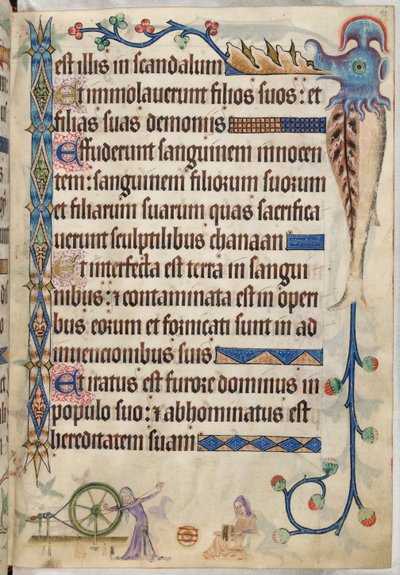 est illis in scandalum
Et immolaverunt filios suos: et
filias suas demoniis
Effuderunt sanguinem innocen
tem: sanguinem filiorum suorum
et filiarum suarum quas sacrifica
uerunt sculptilibus chanaan
Et interfecta est terra in sangui
nibus: ⁊ contaminata est in operi
bus eorum et fornicati sunt in ad
inuencionibus suis
Et iratus est furore dominus in
populo suo: ⁊ abhominatus est
hereditatem suam